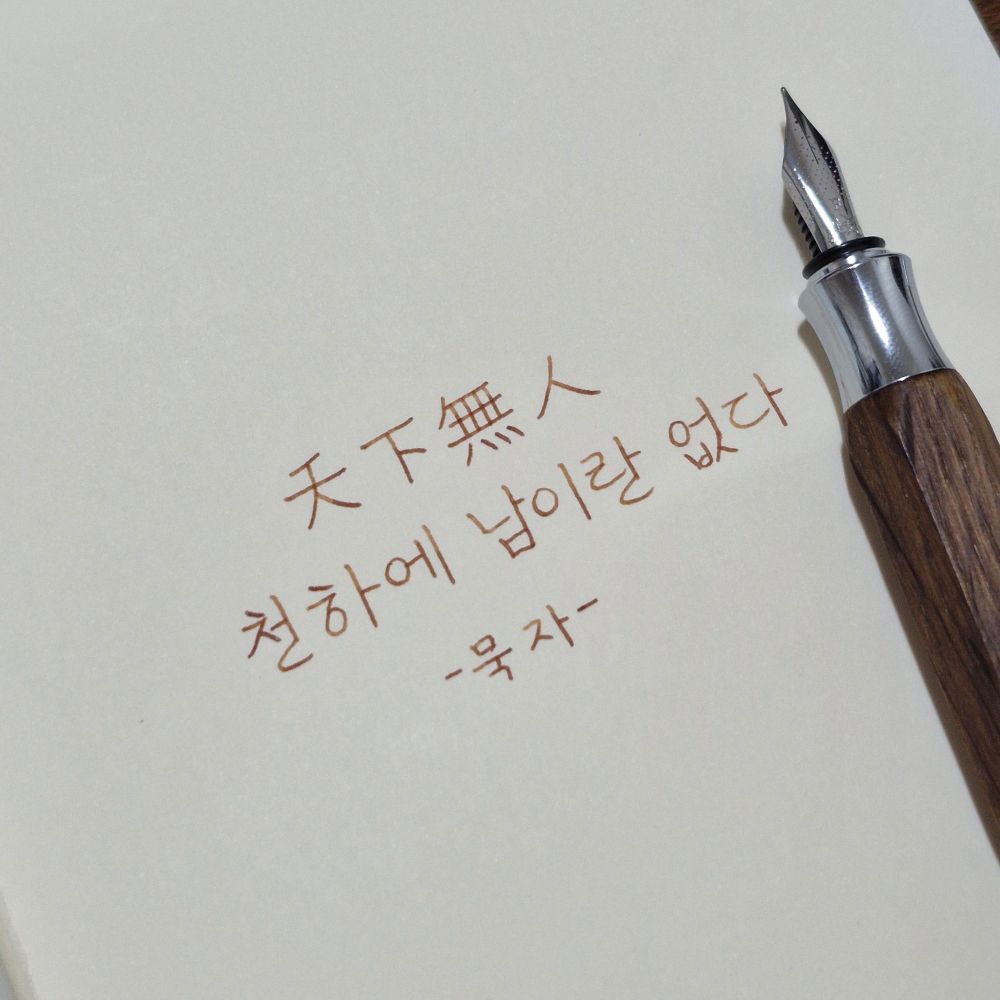 天下無人
천하에 남이란 없다
-묵자-